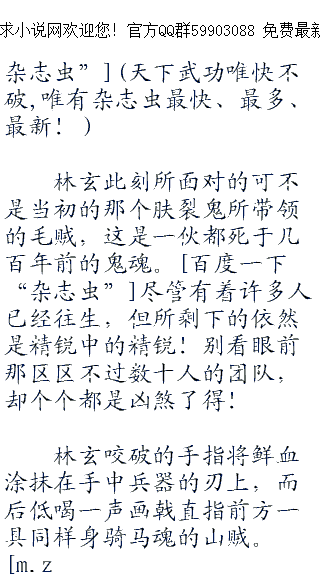 求小说网欢迎您! 官方QQ群59903088 免费最新
杂志虫”](天下武功唯快不
破,唯有杂志虫最快、最多、
最新! )
林玄此刻所面对的可不
是当初的那个肤裂鬼所带领
的毛贼，这是一伙都死于几
百年前的鬼魂。[百度一下
“杂志虫”]尽管有着许多人
已经往生，但所剩下的依然
是精锐中的精锐！别看眼前
那区区不过数十人的团队，
却个个都是凶煞了得！
林玄咬破的手指将鲜血
涂抹在手中兵器的刃上，而
后低喝一声画戟直指前方一
具同样身骑马魂的山贼。
[m.z